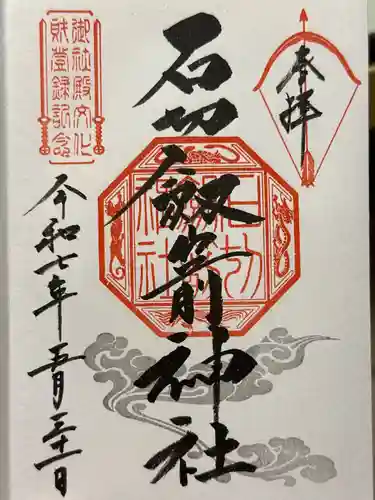 奉拝
石切劔箭神社
石切劔箭神社
御社殿文化
財登録記念
令和七年五月三十一日